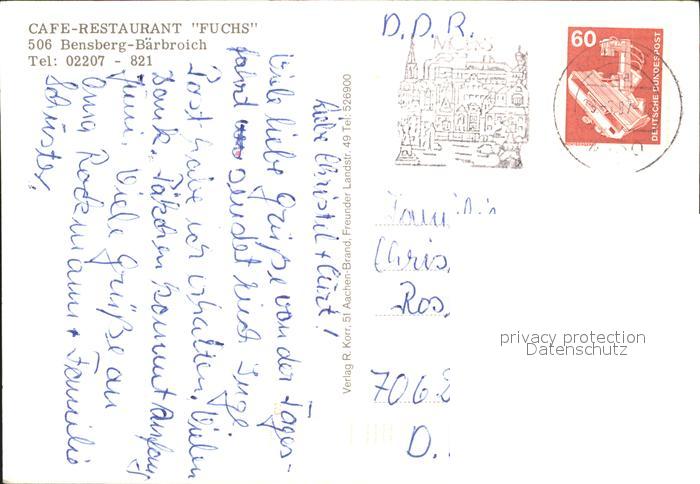 CAFE-RESTAURANT "FUCHS"
506 Bensberg-Bärbroich
Tel: 02207 - 821
Liebe Christel + Kurt!
Viele liebe Grüße von der Tages-
fahrt sendet Euch Inge
Post habe ich erhalten. Vielen
Dank. Päkchen kommt Anfang
Juni. Viele Grüße an
Oma Rockmann + Familie
Schuster.
Verlag R. Korr, 51 Aachen-Brand, Freunder Landstr. 49 Tel. 526900
D.D.R.
60
DEUTSCHE BUNDESPOST
Chris
Ros
7062
D.
privacy protection
Datenschutz